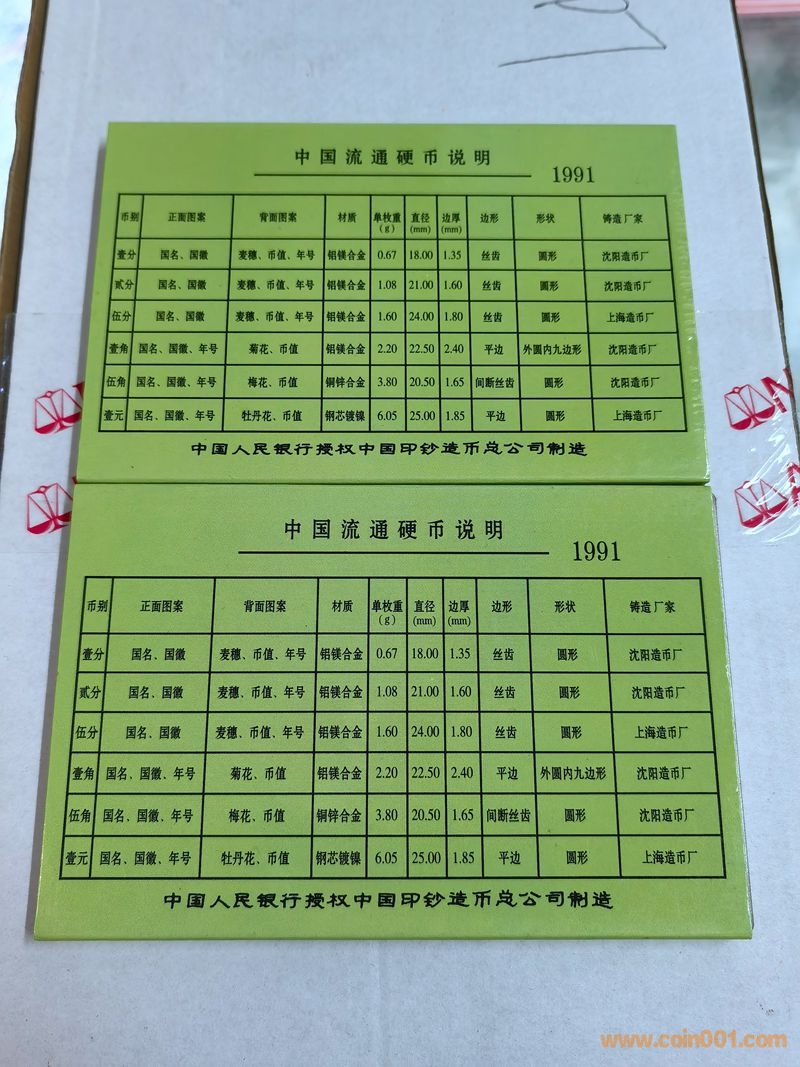 中国流通硬币说明
1991
币别 正面图案 背面图案 材质 单枚重(g) 直径(mm) 边厚(mm) 边形 形状 铸造厂家
壹分 国名、国徽 麦穗、币值、年号 铝镁合金 0.67 18.00 1.35 丝齿 圆形 沈阳造币厂
贰分 国名、国徽 麦穗、币值、年号 铝镁合金 1.08 21.00 1.60 丝齿 圆形 沈阳造币厂
伍分 国名、国徽 麦穗、币值、年号 铝镁合金 1.60 24.00 1.80 丝齿 圆形 上海造币厂
壹角 国名、国徽、年号 菊花、币值 铝镁合金 2.20 22.50 2.40 平边 外圆内九边形 沈阳造币厂
伍角 国名、国徽、年号 梅花、币值 铜锌合金 3.80 20.50 1.65 间断丝齿 圆形 沈阳造币厂
壹元 国名、国徽、年号 牡丹花、币值 钢芯镀镍 6.05 25.00 1.85 平边 圆形 上海造币厂
中国人民银行授权中国印钞造币总公司制造
中国流通硬币说明
1991
币别 正面图案 背面图案 材质 单枚重(g) 直径(mm) 边厚(mm) 边形 形状 铸造厂家
壹分 国名、国徽 麦穗、币值、年号 铝镁合金 0.67 18.00 1.35 丝齿 圆形 沈阳造币厂
贰分 国名、国徽 麦穗、币值、年号 铝镁合金 1.08 21.00 1.60 丝齿 圆形 沈阳造币厂
伍分 国名、国徽 麦穗、币值、年号 铝镁合金 1.60 24.00 1.80 丝齿 圆形 上海造币厂
壹角 国名、国徽、年号 菊花、币值 铝镁合金 2.20 22.50 2.40 平边 外圆内九边形 沈阳造币厂
伍角 国名、国徽、年号 梅花、币值 铜锌合金 3.80 20.50 1.65 间断丝齿 圆形 沈阳造币厂
壹元 国名、国徽、年号 牡丹花、币值 钢芯镀镍 6.05 25.00 1.85 平边 圆形 上海造币厂
中国人民银行授权中国印钞造币总公司制造
www.coin001.com